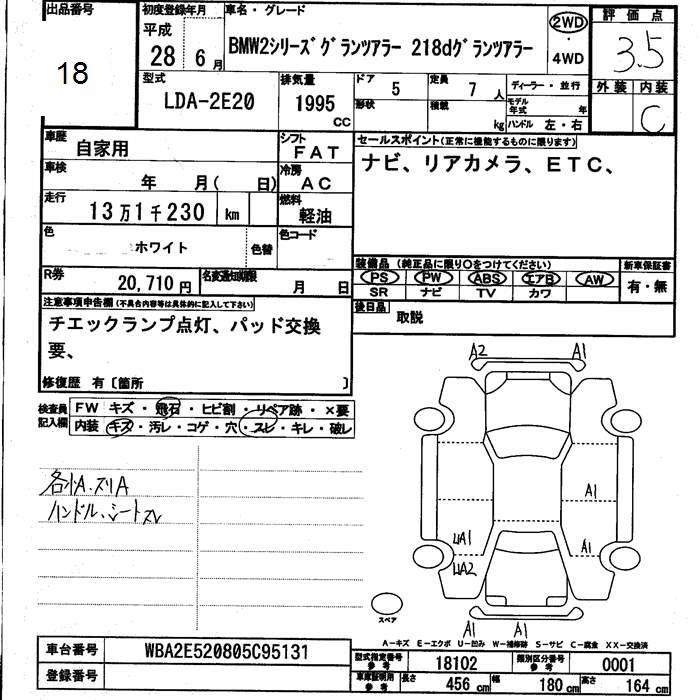 出品番号
18
初度登録年月
平成
28 6月
車名・グレード
BMW2シリーズグランツアラー 218dグランツアラー
2WD
・
4WD
評価点
3.5
外装 内装
C
型式
LDA-2E20
排気量
1995
CC
ドア
5
形状
定員
7人
積載
kg
ディーラー・並行
モデル
年式 年
ハンドル 左・右
車歴
自家用
シフト
FAT
車検
年 月( 日)
冷房
AC
走行
13万1千230 km
燃料
軽油
色
ホワイト
色替
色コード
R券
20,710円
名変通知期限
月 日
セールスポイント(正常に機能するものに限ります)
ナビ、リアカメラ、ETC、
装備品 (純正品に限り〇をつけてください)
PS PW ABS エアB AW
SR ナビ TV カワ
新車保証書
有・無
後日品
取説
注意事項申告欄(不具合内容等は具体的に記入して下さい)
チエックランプ点灯、パッド交換
要、
修復歴 有〔箇所 〕
検査員
記入欄
FW キズ・飛石・ヒビ割・リペア跡・×要
内装 キズ・汚レ・コゲ・穴・スレ・キレ・破レ
各小A.スリA
ハンドル、シートスレ
A2 A1
A1
UA1 A1
UA2
スペア
A1 A1
A-キズ E-エクボ U-凹み W-補修跡 S-サビ C-腐食 XX-交換済
車台番号
WBA2E520805C95131
登録番号
型式指定番号
参考
18102
類別区分番号
参考
0001
車庫証明用
参考
長さ 456cm 幅 180cm 高さ 164cm